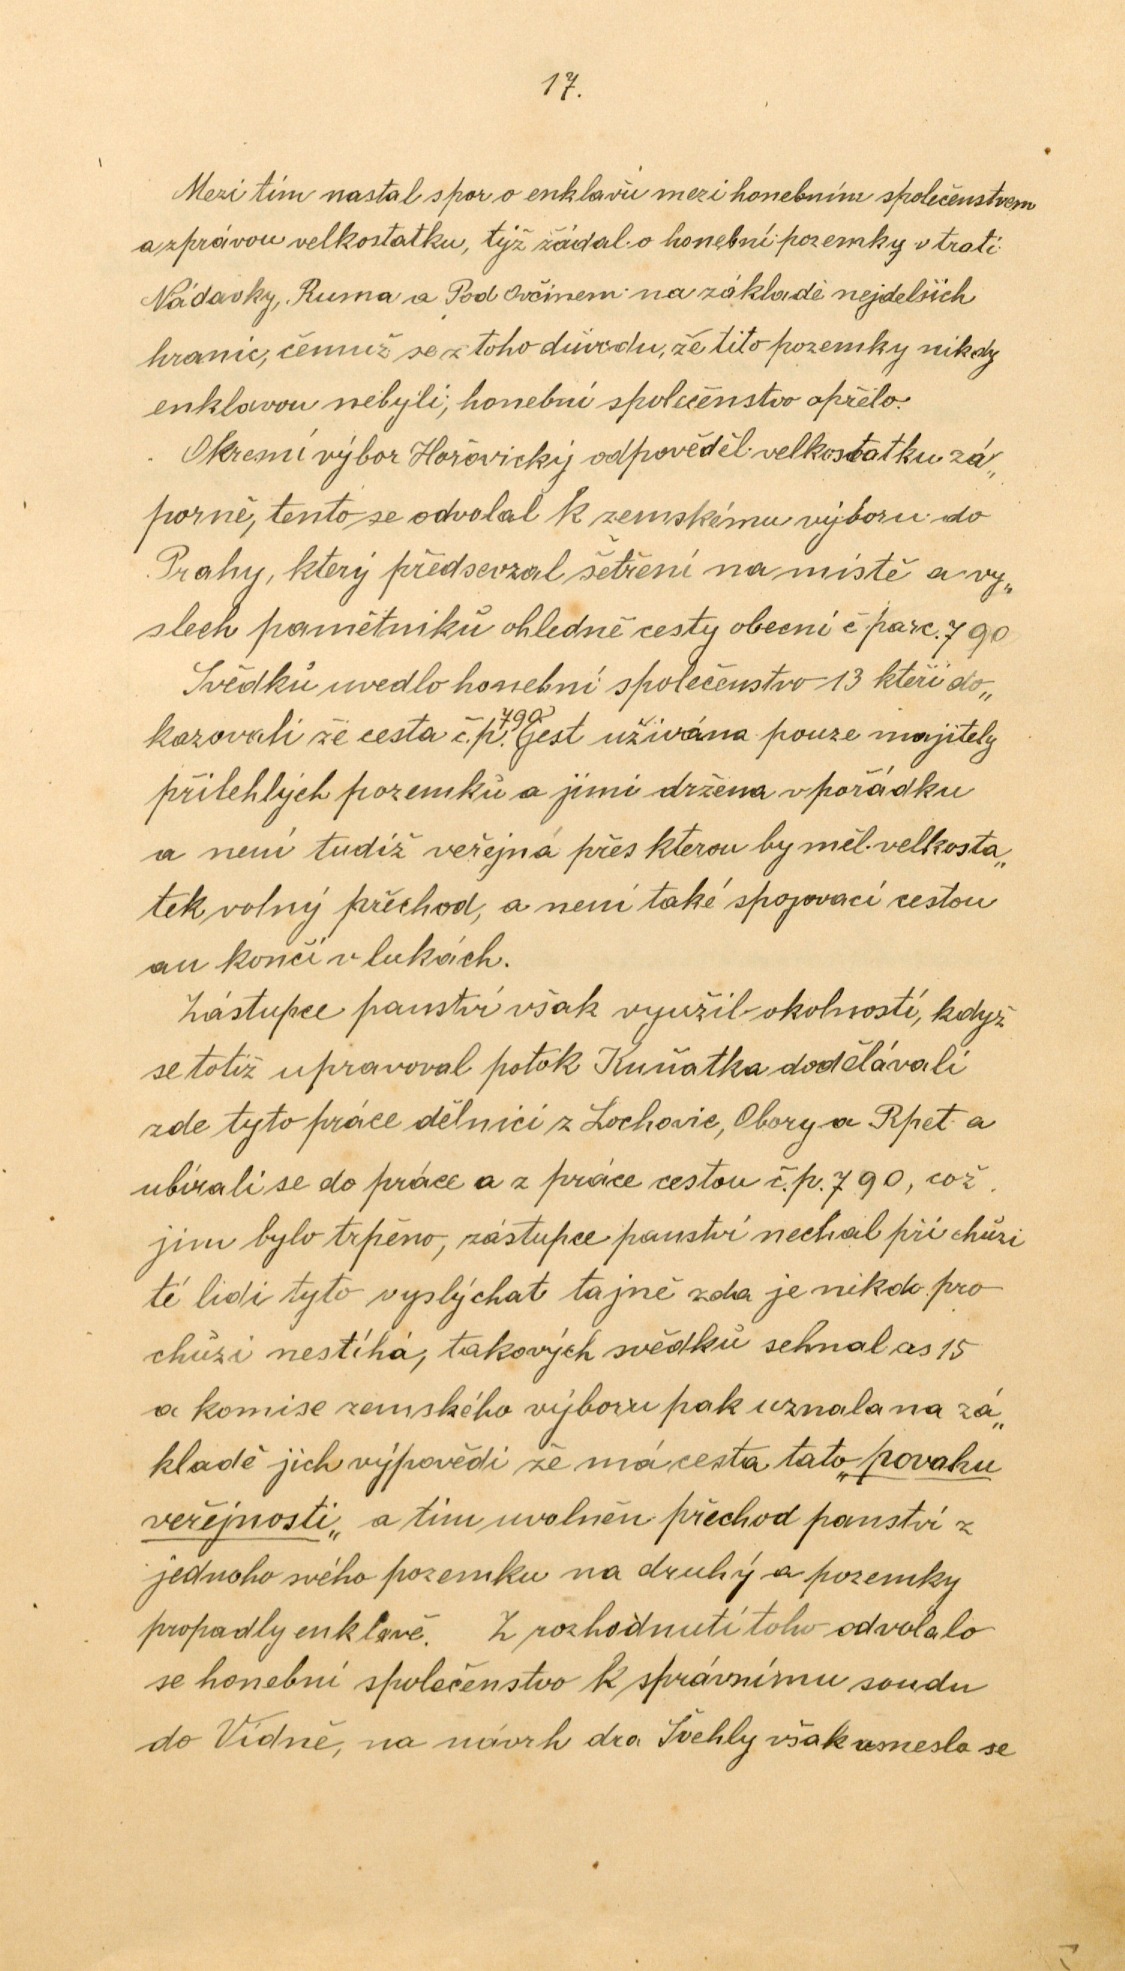 17.
Mezi tím nastal spor o enklavu mezi honebním společenstvem
a zprávou velkostatku, týž žádal o honební pozemky v trati
Nádavky, Ruma a Pod Ovčínem na základě nejdelších
hranic, čemuž se z toho důvodu, že tito pozemky nikdy
enklavou nebyli, honební společenstvo opřelo.
Okresní výbor Hořovický odpověděl velkostatku zá„
porně, tento se odvolal k zemskému výboru do
Prahy, který předsevzal šetření na místě a vy„
slech pamětníků ohledně cesty obecní č parc. 790
Svědků uvedlo honební společenstvo 13 kteří do„
kazovali že cesta č.p. 790 jest užívána pouze majitely
přilehlých pozemků a jimi držena v pořádku
a není tudíž veřejná přes kterou by měl velkosta„
tek volný přechod, a není také spojovací cestou
an končí v lukách.
Zástupce panství však využil okolností, když
se totiž upravoval potok Kuňatka dodělávali
zde tyto práce dělnici z Lochovic, Obory a Rpet a
ubírali se do práce a z práce cestou č.p. 790, což
jim bylo trpěno, zástupce panství nechal při chůzi
té lidi tyto vyslýchat tajně zda je nikdo pro
chůzi nestíhá, takových svědků sehnal as 15
a komise zemského výboru pak uznala na zá„
kladě jich výpovědi že má cesta tato „povahu
veřejnosti„ a tím uvolněn přechod panství z
jednoho svého pozemku na druhý a pozemky
propadly enklavě. Z rozhodnutí toho odvolalo
se honební společenstvo k správnímu soudu
do Vídně, na návrh dra Švehly však usneslo se